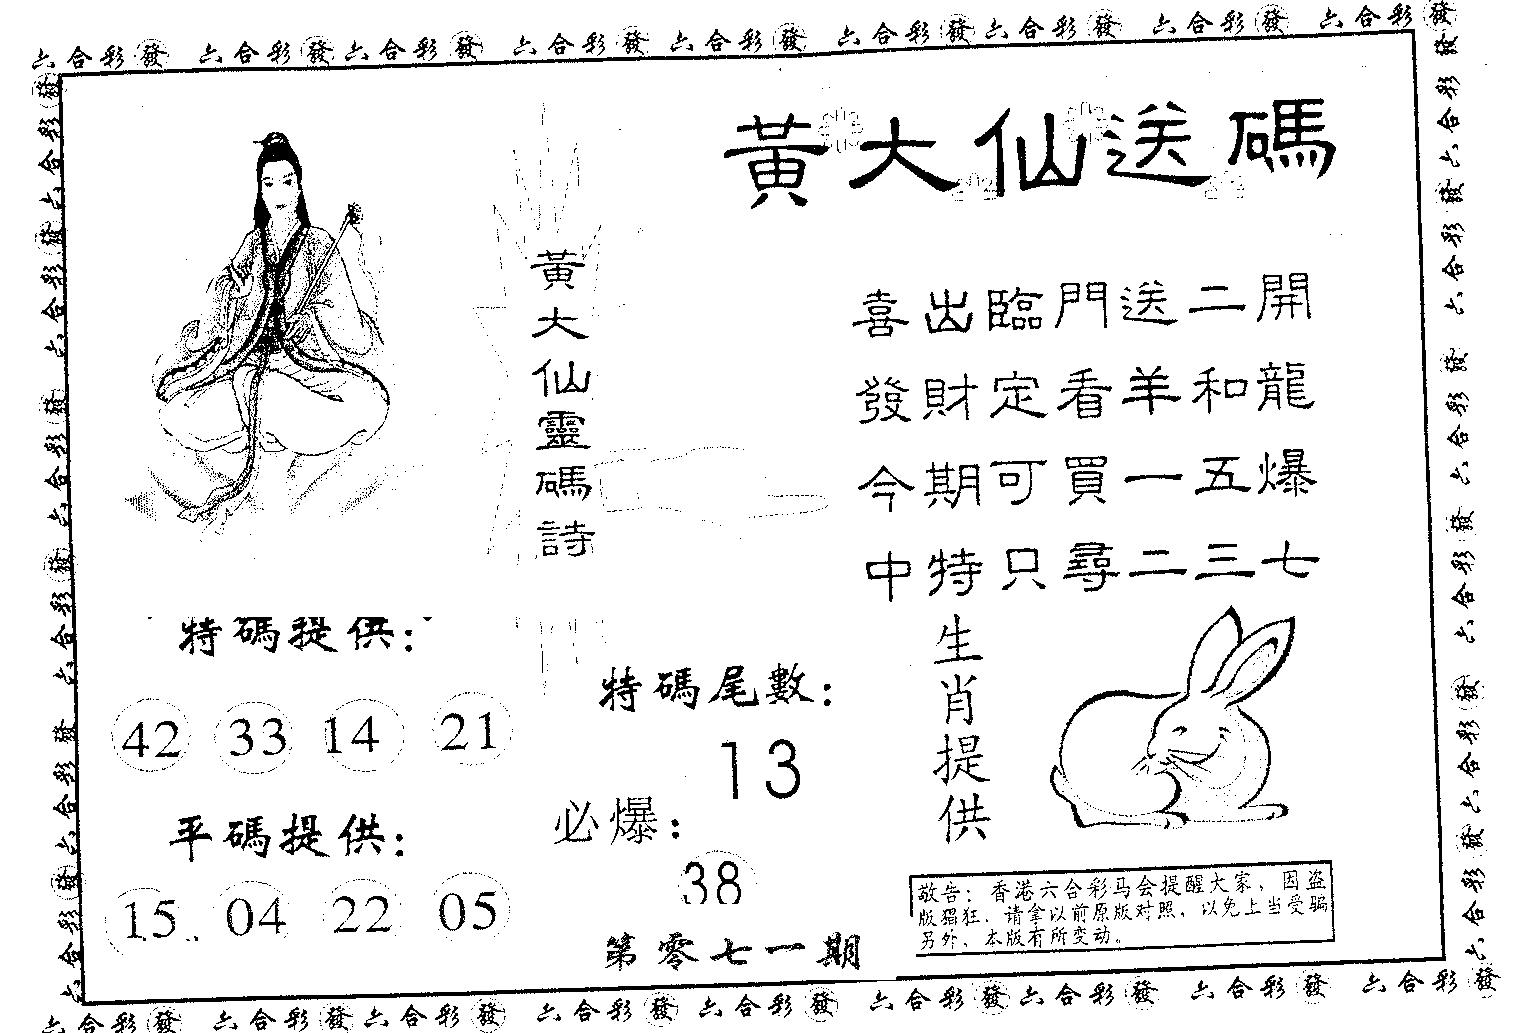 六合彩發 六合彩發 六合彩發 六合彩發 六合彩發 六合彩發 六合彩發 六合彩發 六合彩發
黃大仙送碼
黃大仙靈碼詩
喜出臨門送二開
發財定看羊和龍
今期可買一五爆
中特只尋二三七
特碼提供：
42 33 14 21
平碼提供：
15 04 22 05
特碼尾數：
13
必爆：
38
第零七一期
生肖提供
敬告：香港六合彩马会提醒大家，因盗
版猖狂，请拿以前原版对照，以免上当受骗
另外，本版有所变动。
六合彩發 六合彩發 六合彩發 六合彩發 六合彩發 六合彩發 六合彩發 六合彩發 六合彩發